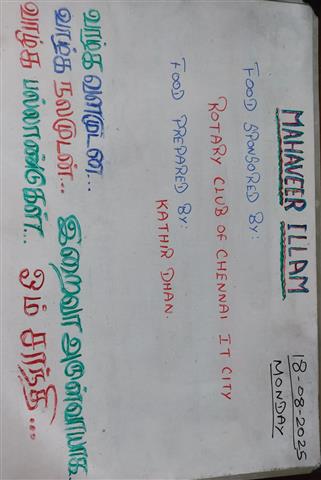 18-08-2025
MONDAY
MAHAVEER ILLAM
FOOD SPONSORED BY:
ROTARY CLUB OF CHENNAI IT CITY
FOOD PREPARED BY:
KATHIR DHAN.
வாழ்க வளமுடன்... இறைவா அருள்வாயாக...
வாழ்க நலமுடன்...
வாழ்க பல்லாண்டுகள்... ஓம் சாந்தி...